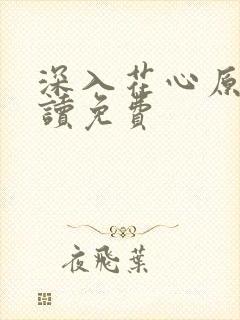 深入花心原
讀免費
夜飛葉